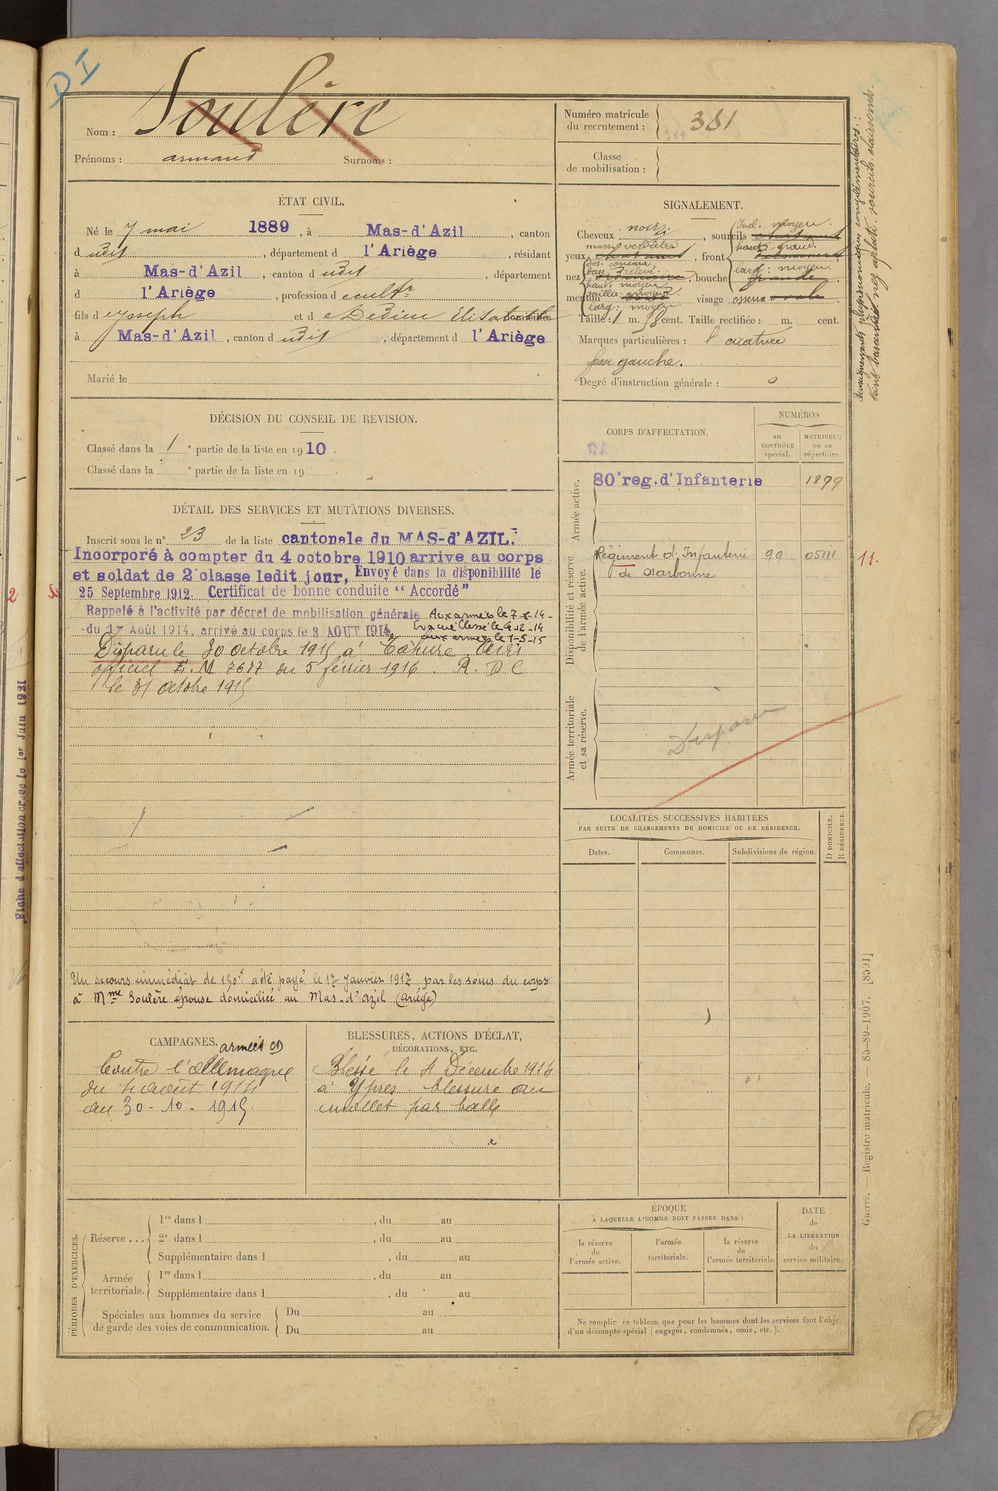 DI
Nom : Soulère
Prénoms : armand Surnoms :
Numéro matricule du recrutement : 381
Classe de mobilisation :
ÉTAT CIVIL.
Né le 7 mai 1889, à Mas-d'Azil, canton
dudit, département d l'Ariège, résidant
à Mas-d'Azil, canton dudit, département
d l'Ariège, profession de cultr
fils de Joseph et de Dedieu Elisabeth domiciliés
à Mas-d'Azil, canton dudit, département d l'Ariège
Marié le
SIGNALEMENT.
Cheveux noirs, sourcils
yeux marron verdâtre, front
Incl. moyen
haut. grand.
larg. moyen
nez, bouche
menton visage osseux
Taille : 1 m. 58 cent. Taille rectifiée : m. cent.
Marques particulières : 1 cicatrice
face gauche.
Degré d'instruction générale : 0
Renseignements physionomiques complémentaires :
DÉCISION DU CONSEIL DE REVISION.
Classé dans la 1 e partie de la liste en 1910.
Classé dans la e partie de la liste en 19
CORPS D'AFFECTATION.
NUMÉROS
au CONTRÔLE spécial.
MATRICULE ou au répertoire.
Armée active.
80e reg. d'Infanterie 1899
Disponibilité et réserve de l'armée active.
Régiment d'Infanterie 99 05111 11.
de Narbonne
Armée territoriale et sa réserve.
Disparu
DÉTAIL DES SERVICES ET MUTATIONS DIVERSES.
Inscrit sous le n° 23 de la liste cantonale du MAS-d'AZIL.
Incorporé à compter du 4 octobre 1910 arrivé au corps
et soldat de 2e classe ledit jour, Envoyé dans la disponibilité le
25 Septembre 1912. Certificat de bonne conduite "Accordé"
Rappelé à l'activité par décret de mobilisation générale Aux armées le 7-8-14-
du 1er Août 1914, arrivé au corps le 3 AOUT 1914 Evacué blessé le 4-12-14
aux armées le 1-5-15
Disparu le 30 octobre 1915 à Tahure Avis
officiel E. M 7677 du 5 février 1916 R. D. C
le 31 octobre 1915
Un secours immédiat de 150f a été payé le 17 Janvier 1917 par les soins du corps
à Mme Soulère épouse domiciliée au Mas-d'azil (ariège)
LOCALITÉS SUCCESSIVES HABITÉES
PAR SUITE DE CHANGEMENTS DE DOMICILE OU DE RÉSIDENCE.
Dates. Communes. Subdivisions de région. D DOMICILE. R RÉSIDENCE.
CAMPAGNES. armées
Contre l'allemagne
du 4 août 1914
au 30-10-1915.
BLESSURES, ACTIONS D'ÉCLAT, DÉCORATIONS, ETC.
Blessé le 4 Décembre 1914
à Ypres. blessure au
mollet par balle
PÉRIODES D'EXERCICES.
Réserve ...
1re dans l , du au
2e dans l , du au
Supplémentaire dans l , du au
Armée territoriale.
1re dans l , du au
Supplémentaire dans l , du au
Spéciales aux hommes du service de garde des voies de communication.
Du au
Du au
ÉPOQUE
À LAQUELLE L'HOMME DOIT PASSER DANS :
la réserve de l'armée active.
l'armée territoriale.
la réserve de l'armée territoriale
DATE de LA LIBÉRATION du service militaire.
Ne remplir ce tableau que pour les hommes dont les services font l'objet
d'un décompte spécial (engagés, condamnés, omis, etc.).
Guerre. — Registre matricule. — 85-89-1907. [8591]
Fiche d'affectation créée le 1er Juin 1921